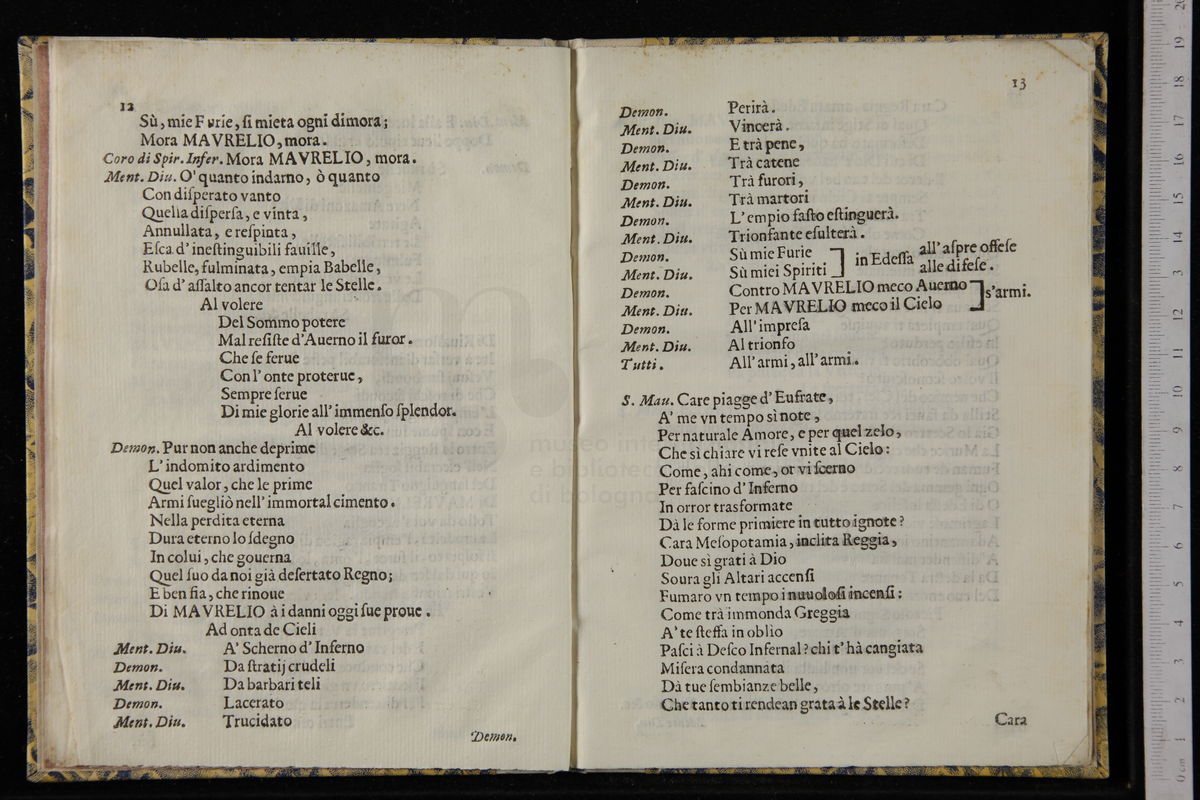 12
Sù, mie Furie, ſi mieta ogni dimora;
Mora MAVRELIO, mora.
Coro di Spir. Infer. Mora MAVRELIO, mora.
Ment. Diu. O' quanto indarno, ò quanto
Con diſperato vanto
Quella diſperſa, e vinta,
Annullata, e reſpinta,
Eſca d' ineſtinguibili fauille,
Rubelle, fulminata, empia Babelle,
Oſa d' aſſalto ancor tentar le Stelle.
Al volere
Del Sommo potere
Mal reſiſte d'Auerno il furor.
Che ſe ferue
Con l' onte proterue,
Sempre ſerue
Di mie glorie all' immenſo ſplendor.
Al volere &c.
Demon. Pur non anche deprime
L' indomito ardimento
Quel valor, che le prime
Armi ſuegliò nell' immortal cimento.
Nella perdita eterna
Dura eterno lo ſdegno
In colui, che gouerna
Quel ſuo da noi già deſertato Regno;
E ben fia, che rinoue
Di MAVRELIO à i danni oggi ſue proue.
Ad onta de Cieli
Ment. Diu. A' Scherno d' Inferno
Demon. Da ſtratij crudeli
Ment. Diu. Da barbari teli
Demon. Lacerato
Ment. Diu. Trucidato
Demon.
13
Demon. Perirà.
Ment. Diu. Vincerà.
Demon. E trà pene,
Ment. Diu. Trà catene
Demon. Trà furori,
Ment. Diu. Trà martori
Demon. L' empio faſto eſtinguerà.
Ment. Diu. Trionfante eſulterà.
Demon. Sù mie Furie ] in Edeſſa all' aſpre offeſe
Ment. Diu. Sù miei Spiriti ] alle difeſe.
Demon. Contro MAVRELIO meco Auerno ] s'armi.
Ment. Diu. Per MAVRELIO meco il Cielo
Demon. All' impreſa
Ment. Diu. Al trionfo
Tutti. All' armi, all' armi.
S. Mau. Care piagge d' Eufrate,
A' me vn tempo sì note,
Per naturale Amore, e per quel zelo,
Che sì chiare vi reſe vnite al Cielo:
Come, ahi come, or vi ſcerno
Per faſcino d' Inferno
In orror trasformate
Dà le forme primiere in tutto ignote?
Cara Meſopotamia, inclita Reggia,
Doue sì grati à Dio
Soura gli Altari accenſi
Fumaro vn tempo i nuuoloſi incenſi:
Come trà immonda Greggia
A' te ſteſſa in oblìo
Paſci à Deſco Infernal? chi t' hà cangiata
Miſera condannata
Dà tue ſembianze belle,
Che tanto ti rendean grata à le Stelle?
Cara